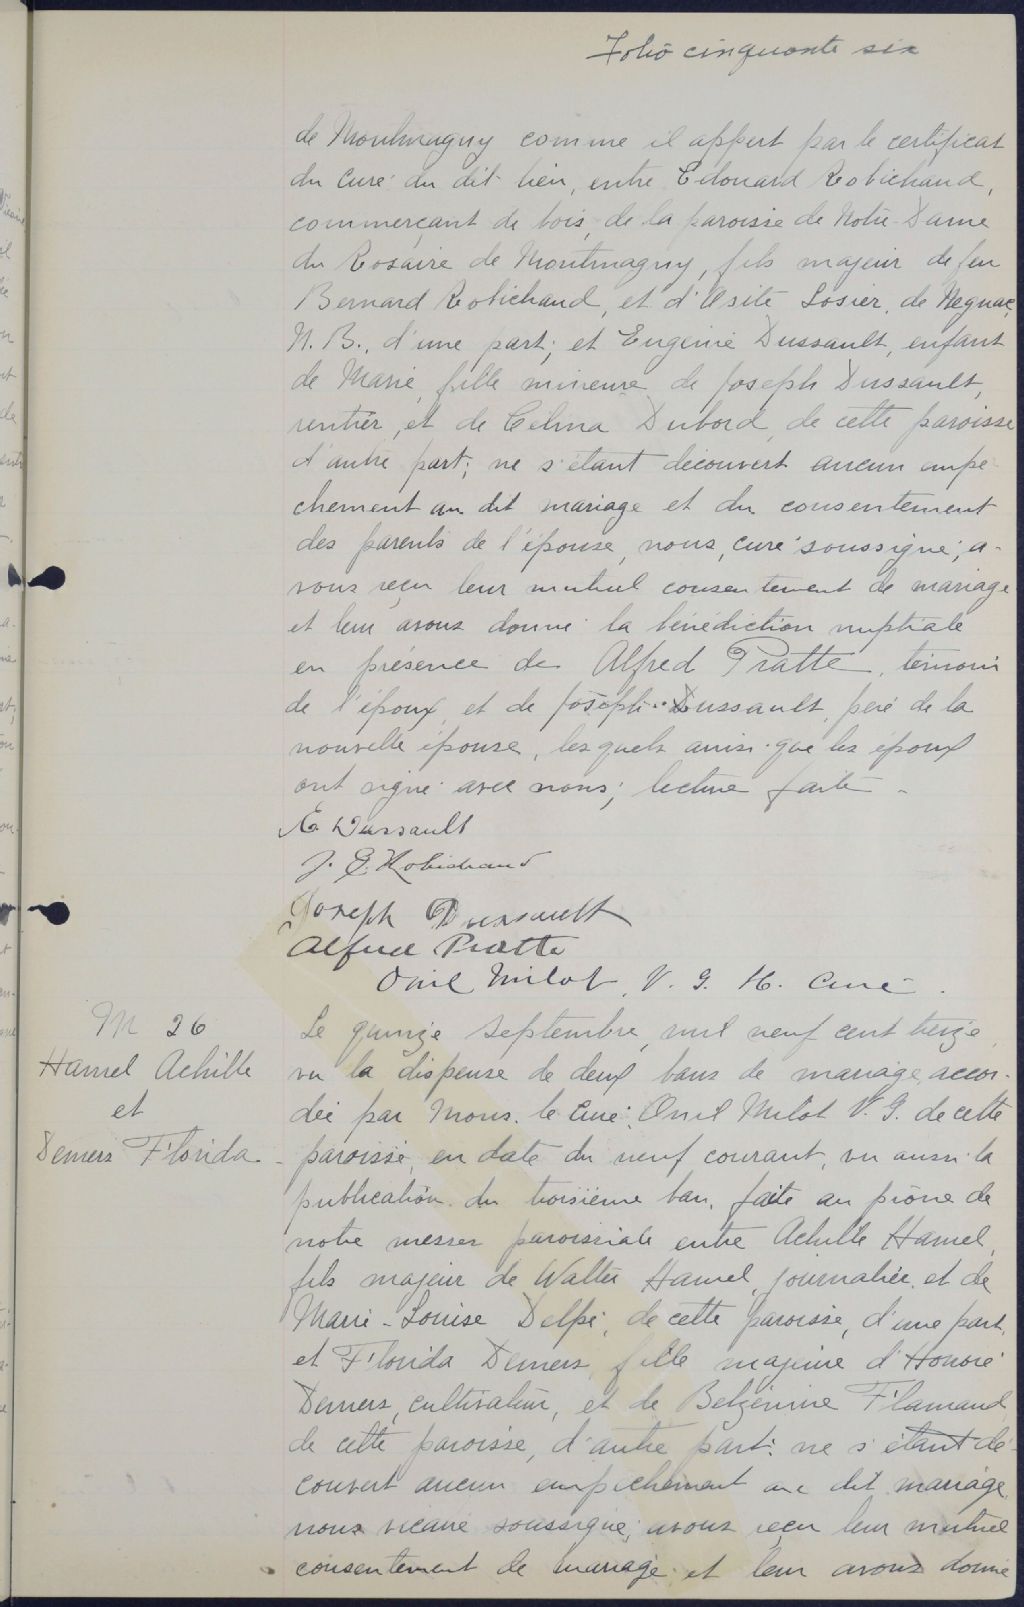 Folio cinquante six
de Montmagny comme il appert par le certificat
du curé du dit lieu, entre Edouard Robichaud,
commerçant de bois, de la paroisse de Notre-Dame
du Rosaire de Montmagny, fils majeur de feu
Bernard Robichaud, et d'Osite Losier, de Neguac,
N. B., d'une part; et Eugénie Dussault, enfant
de Marie, fille mineure de Joseph Dussault,
rentier, et de Célina Dubord, de cette paroisse
d'autre part; ne s'étant découvert aucun empê-
chement au dit mariage et du consentement
des parents de l'épouse, nous, curé soussigné, a-
vons reçu leur mutuel consentement de mariage
et leur avons donné la bénédiction nuptiale
en présence de Alfred Pratte, témoin
de l'époux, et de Joseph Dussault, père de la
nouvelle épouse, lesquels ainsi que les époux
ont signé avec nous; lecture faite -
E. Dussault
J. E. Robichaud
Joseph Dussault
Alfred Pratte
Onil Milot, V. G. H. Curé.
M 26
Hamel Achille
et
Demers Florida
Le quinze septembre, mil neuf cent treize,
vu la dispense de deux bans de mariage, accor-
dée par Mons. le Curé Onil Milot V. G. de cette
paroisse, en date du neuf courant, vu aussi la
publication du troisième ban, faite au prône de
notre messe paroissiale entre Achille Hamel,
fils majeur de Walter Hamel, journalier, et de
Marie-Louise Delpé, de cette paroisse, d'une part,
et Florida Demers, fille majeure d'Honoré
Demers, cultivateur, et de Belzémire Flamand
de cette paroisse, d'autre part: ne s'étant dé-
couvert aucun empêchement au dit mariage,
nous vicaire soussigné, avons reçu leur mutuel
consentement de mariage et leur avons donné